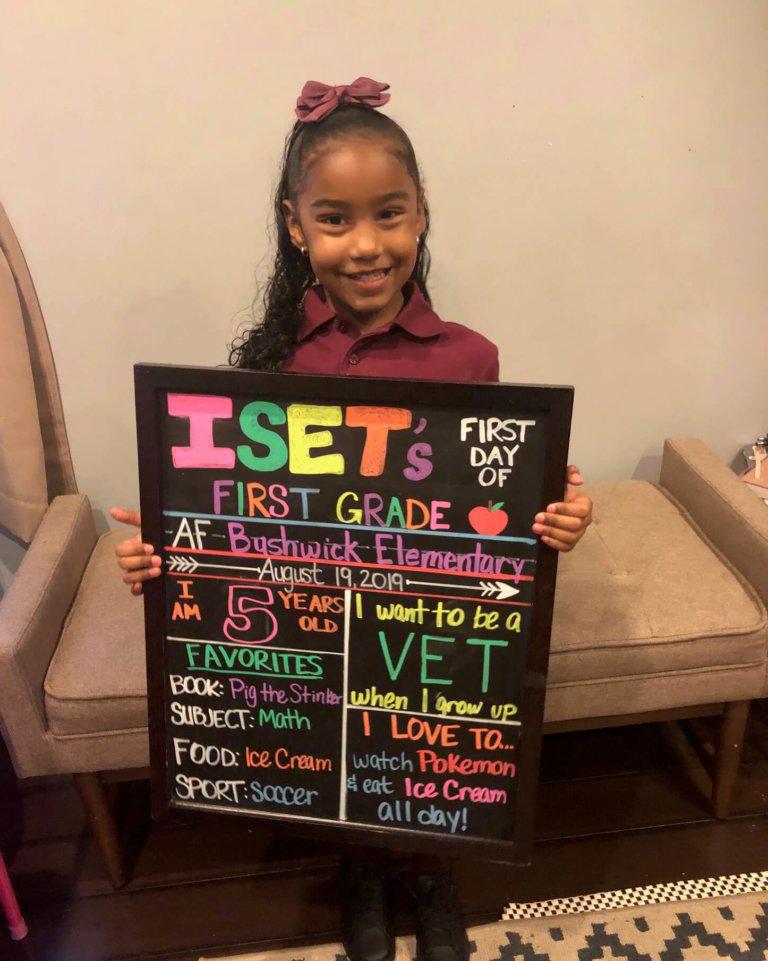 ISET's
FIRST
DAY
OF
FIRST GRADE
AF Bushwick Elementary
August 19, 2019
I
AM
5
YEARS
OLD
FAVORITES
BOOK: Pig the Stinker
SUBJECT: Math
FOOD: Ice Cream
SPORT: Soccer
I want to be a
VET
when I grow up
I LOVE TO...
watch Pokemon
& eat Ice Cream
all day!